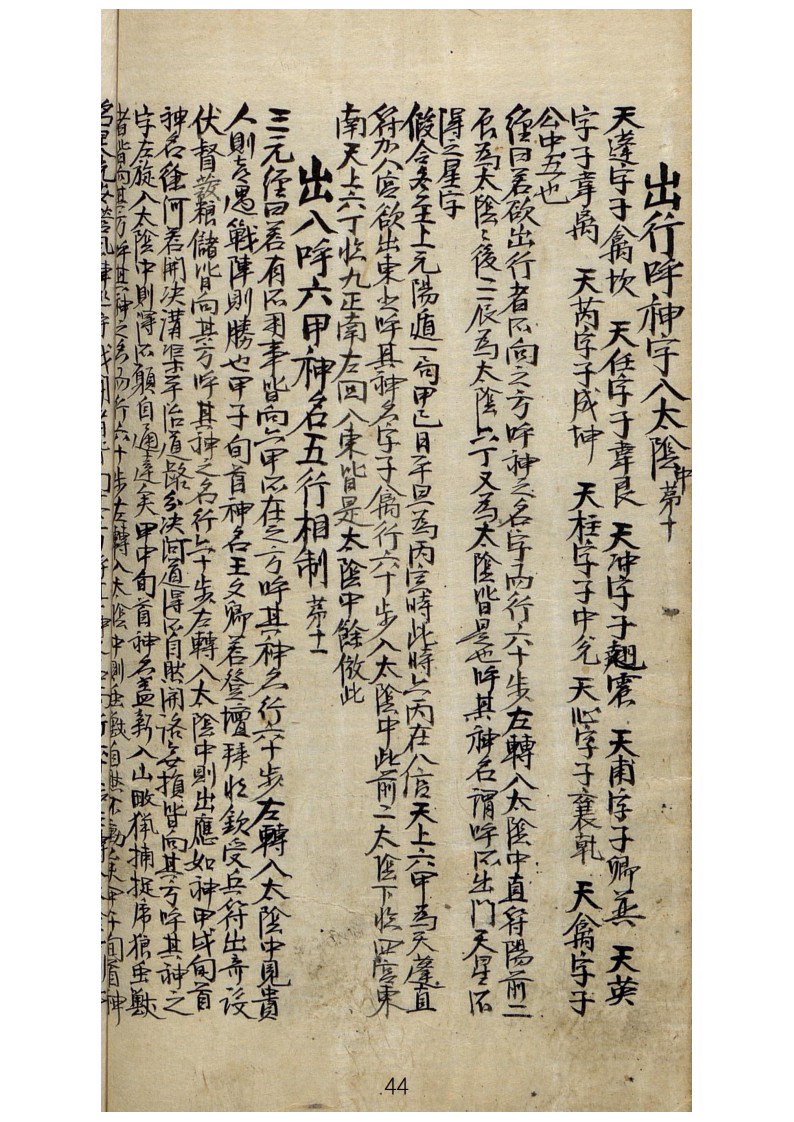 出行呼神字入太陰中第十
天蓬字子禽坎 天任字子韋艮 天冲字子翹震 天甫字子卿巽 天英
字子韋离 天芮字子成坤 天柱字子中兌 天心字子襄乾 天禽字子
公中五也
經曰若欲出行者所向之方呼神之名字而行六十步左轉入太陰中直符陽前二
辰為太陰〻後二辰為太陰六丁又為太陰皆是也呼其神名謂呼所出門天星所
得之星字
假令冬至上元陽遁一局甲己日平旦為丙寅時此時六丙在八宮天上六甲為天蓬直
符加八宮欲出東北呼其神名字子禽行六十步入太陰中此前二太陰下臨四宮東
南天上六丁臨九正南左回八東皆是太陰中餘倣此
出入呼六甲神名五行相制 第十一
三元經曰若有所用事皆向六甲所在之方呼其神名行六十步左轉入太陰中見貴
人則喜遇戰陣則勝也甲子旬首神名王文卿若登壇拜將欽受兵符出奇設
伏督發粮儲皆向其方呼其神之名行六十步左轉入太陰中則出應如神甲戌旬首
神名徐何若開決溝渠平治道路分決河道得所自然開洛無損皆向其方呼其神之
字左旋入太陰中則得所願自通達矣甲申旬首神名蓋新入山畋獵捕捉虎狼虫獸
者皆向其方呼其神之名而行六十步左轉入太陰中則虫獸自然不動矣甲午旬首神
44